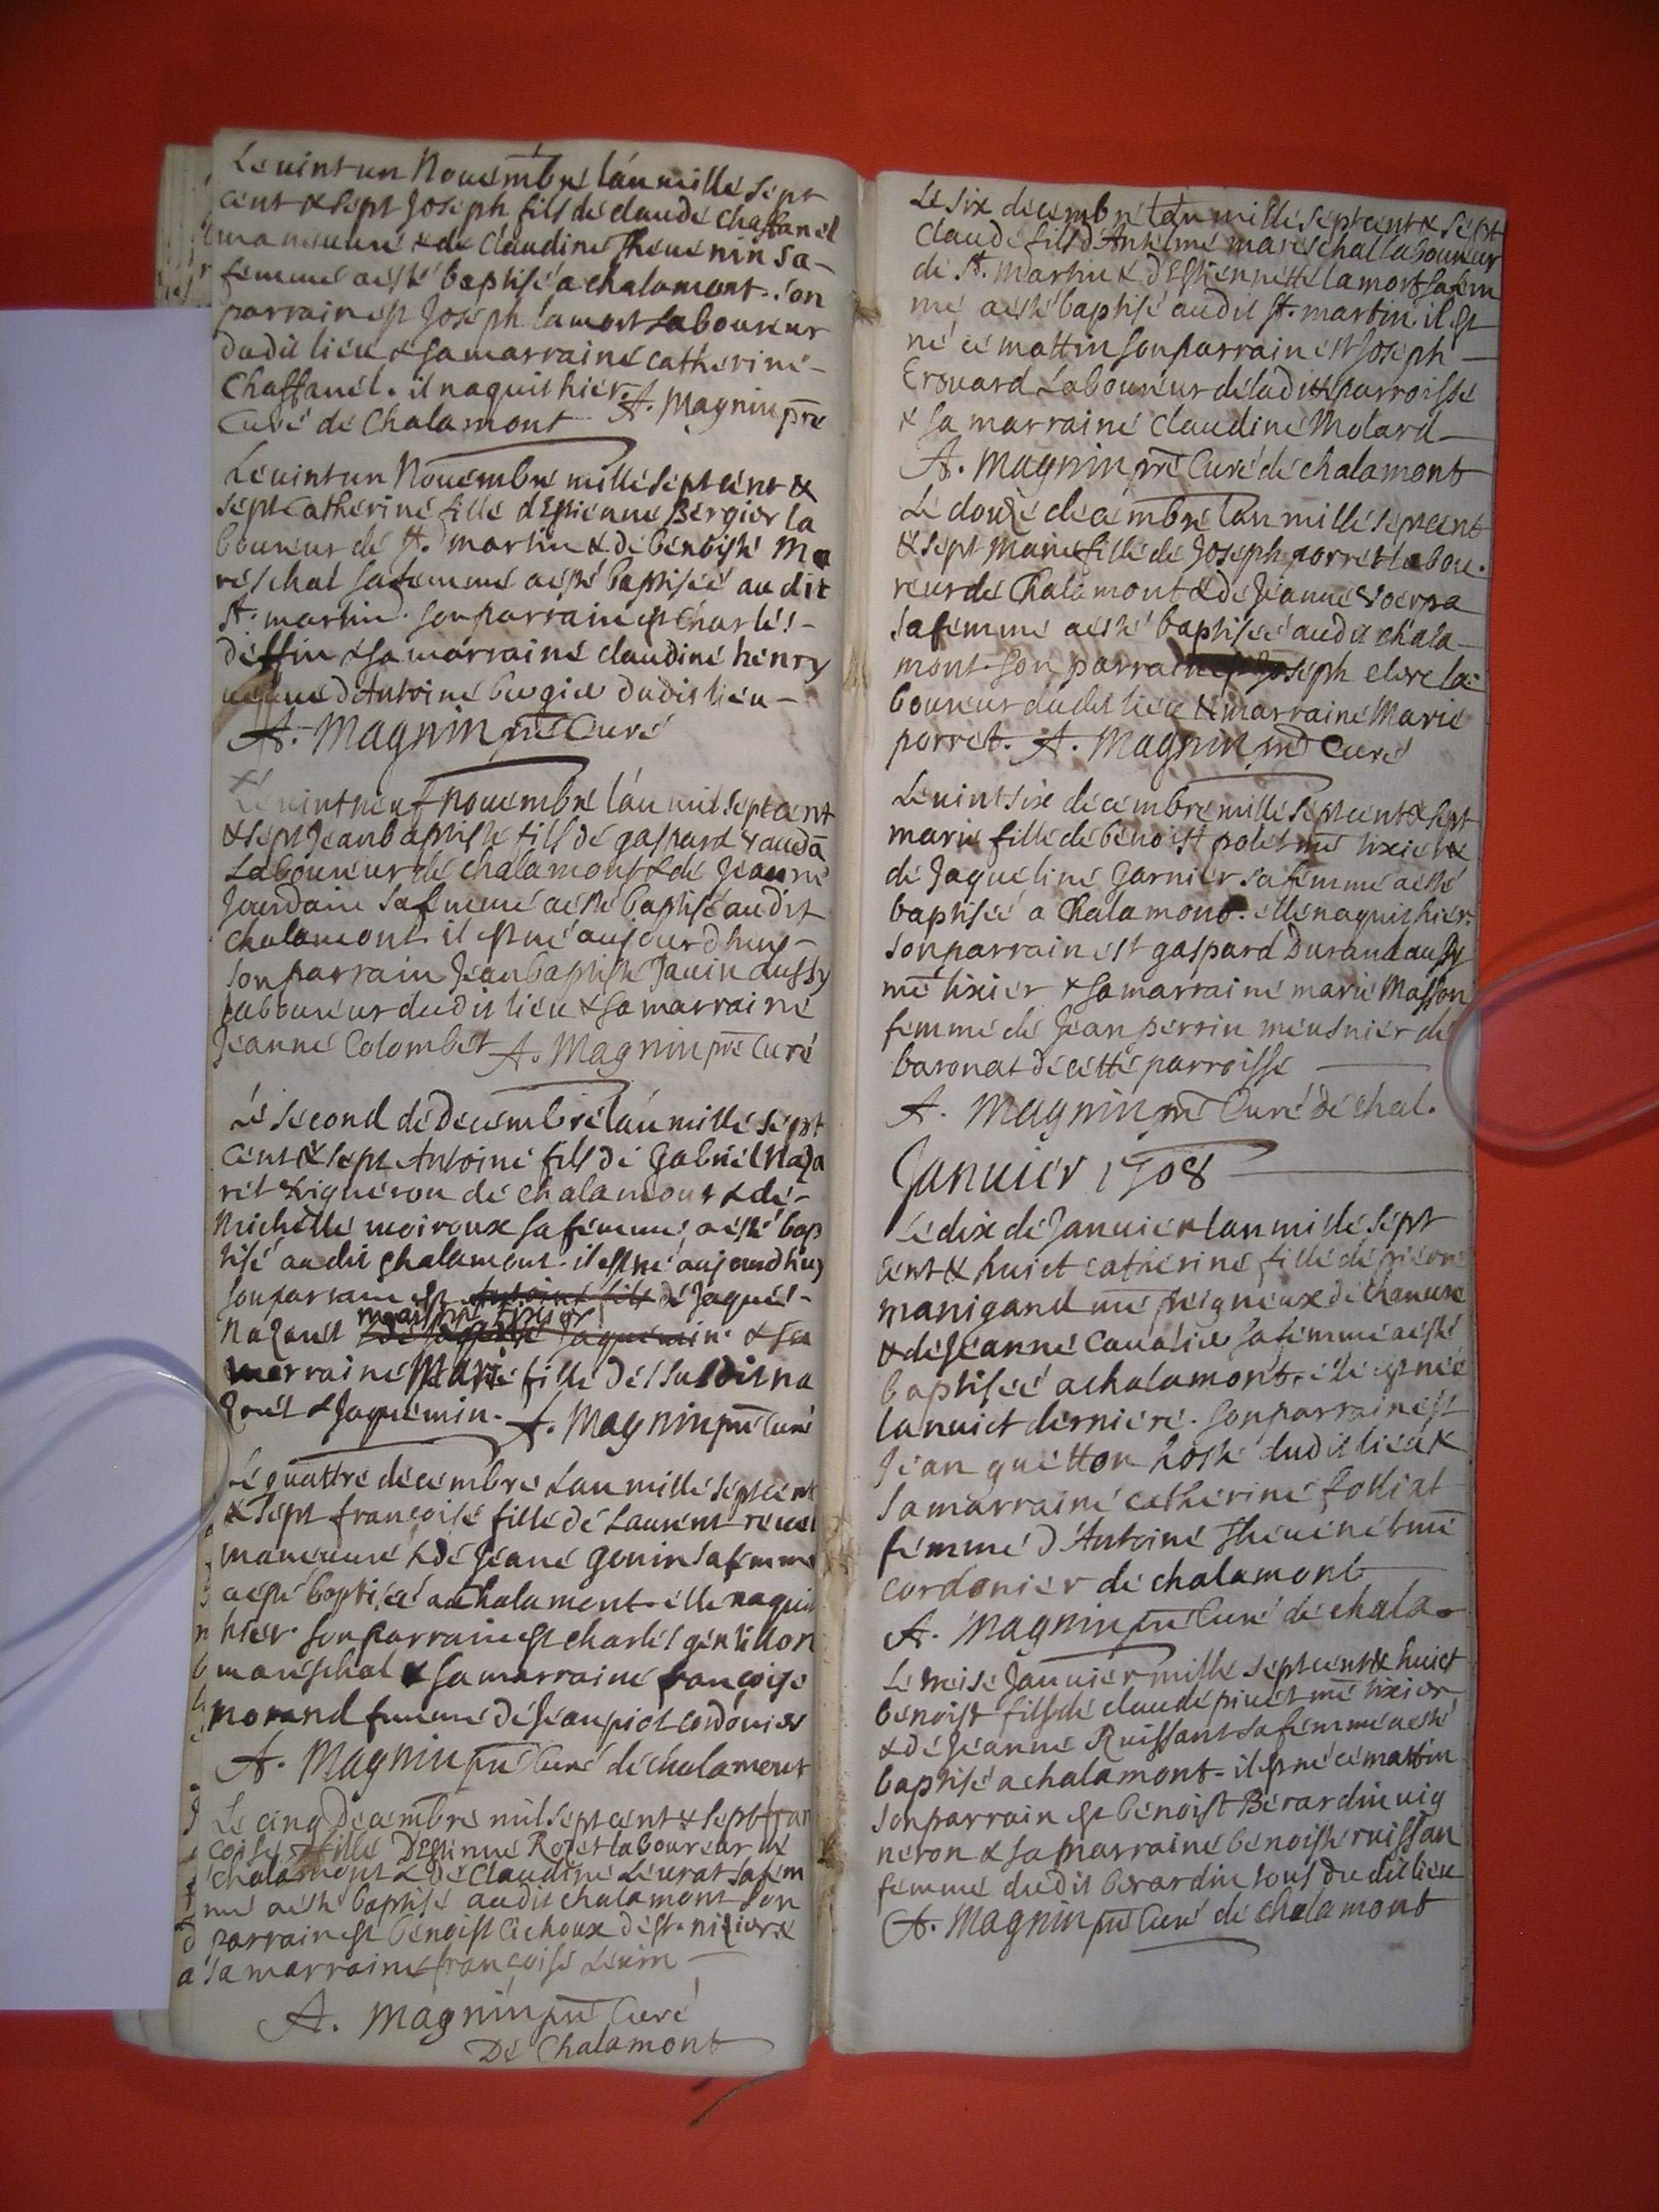 Le vint un Novembre l'an mille sept
cent & sept Joseph fils de claude chaffanel
manouvre & de Claudine Thevenin sa
femme a esté baptisé a chalamont. son
parrain est Joseph lamort laboureur
dudit lieu & sa marraine catherine
Chaffanel. il naquit hier. A. Magnin pre
Curé de Chalamont
Le vint un Novembre mille sept cent &
sept Catherine fille d'Estienne Bergier la
boureur de St. martin & de benoiste Ma
reschal sa femme a esté baptisée au dit
St. martin. son parrain est Charles
deffin & sa marraine claudine henry
veufve d'Antoine bergier dudit lieu
A. Magnin pre Curé
Le vint neuf novembre l'an mil sept cent
& sept Jean baptiste fils de gaspard
Laboureur de chalamont & de Jeanne
Jourdain sa femme a esté baptisé au dit
chalamont. il est né aujourdhuy
son parrain Jean baptiste Janin aussy
laboureur dudit lieu & sa marraine
Jeanne Colombet A. Magnin pre Curé
Le second de decembre l'an mille sept
cent & sept Antoine fils de Gabriel Naza
ret vigneron de chalamont & de
Michelle moiroux sa femme a esté bap
tisé au dit chalamont. il est né aujourdhuy
son parrain est Antoine fils de Jaques
maistre tixier
Nazaret Jaquemin. & sa
marraine Marie fille de susdit na
zaret & Jaquemin. A. Magnin pre Curé
Le quattre decembre l'an mille sept cent
& sept francoise fille de Laurent revel
manouvre & de Jeane Gonin sa femme
a esté baptisée a Chalamont. elle naquit
hier. son parrain est charles gentillon
mareschal & sa marraine francoise
morand femme de Jean piot cordonier
A. Magnin pre Curé de chalamont
Le cinq Decembre mil sept cent & sept fran
coise fille D'Estienne Rozet laboureur de
chalamont & de Claudine Leurat sa fem
me a esté baptisé au dit chalamont son
parrain est benoist lichoux de st. nizier &
sa marraine francoise
A. Magnin pre Curé
De Chalamont
Le six decembre l'an mille sept cent & sept
Claude fils d'Antelme mareschal laboureur
de St. Martin & d'Estiennette lamort sa fem
me a esté baptisé au dit St. martin. il est
né ce mattin son parrain est Joseph
Erouard Laboureur de la ditte parroisse
& sa marraine Claudine Molard
A. Magnin pre Curé de chalamont
Le douze decembre l'an mille sept cent
& sept Marie fille de Joseph porret labou
reur de Chalamont & de Jeanne
sa femme a esté baptisée au dit chala
mont. son parrain est Joseph clere la
boureur dudit lieu & marraine Marie
porret. A. Magnin pre Curé
Le vint six decembre mille sept cent & sept
marie fille de benoist polet me tixier &
de Jaqueline Garnier sa femme a esté
baptisée a Chalamont. elle naquit hier.
son parrain est gaspard Durand aussy
me tixier & sa marraine marie Masson
femme de Jean perrin meusnier de
baronat de cette parroisse
A. Magnin pre Curé de chal.
Janvier 1708
Le dix de Janvier l'an mille sept
cent & huict catherine fille de pierre
manigand me peigneux de chanvre
& de Jeanne Cavalier sa femme a esté
baptisée a chalamont. elle est née
la nuict derniere. son parrain est
Jean guetton hoste dudit lieu &
sa marraine catherine folliat
femme d'Antoine Thevenet me
cordonier de chalamont
A. Magnin pre Curé de chala.
Le treise Janvier mille sept cent & huict
benoist fils de claude pivet me tixier
& de Jeanne Ruissant sa femme a esté
baptisé a chalamont. il est né ce mattin
son parrain est benoist Berardin vig
neron & sa marraine benoiste ruissan
femme dudit berardin tous du dit lieu
A. Magnin pre Curé de chalamont